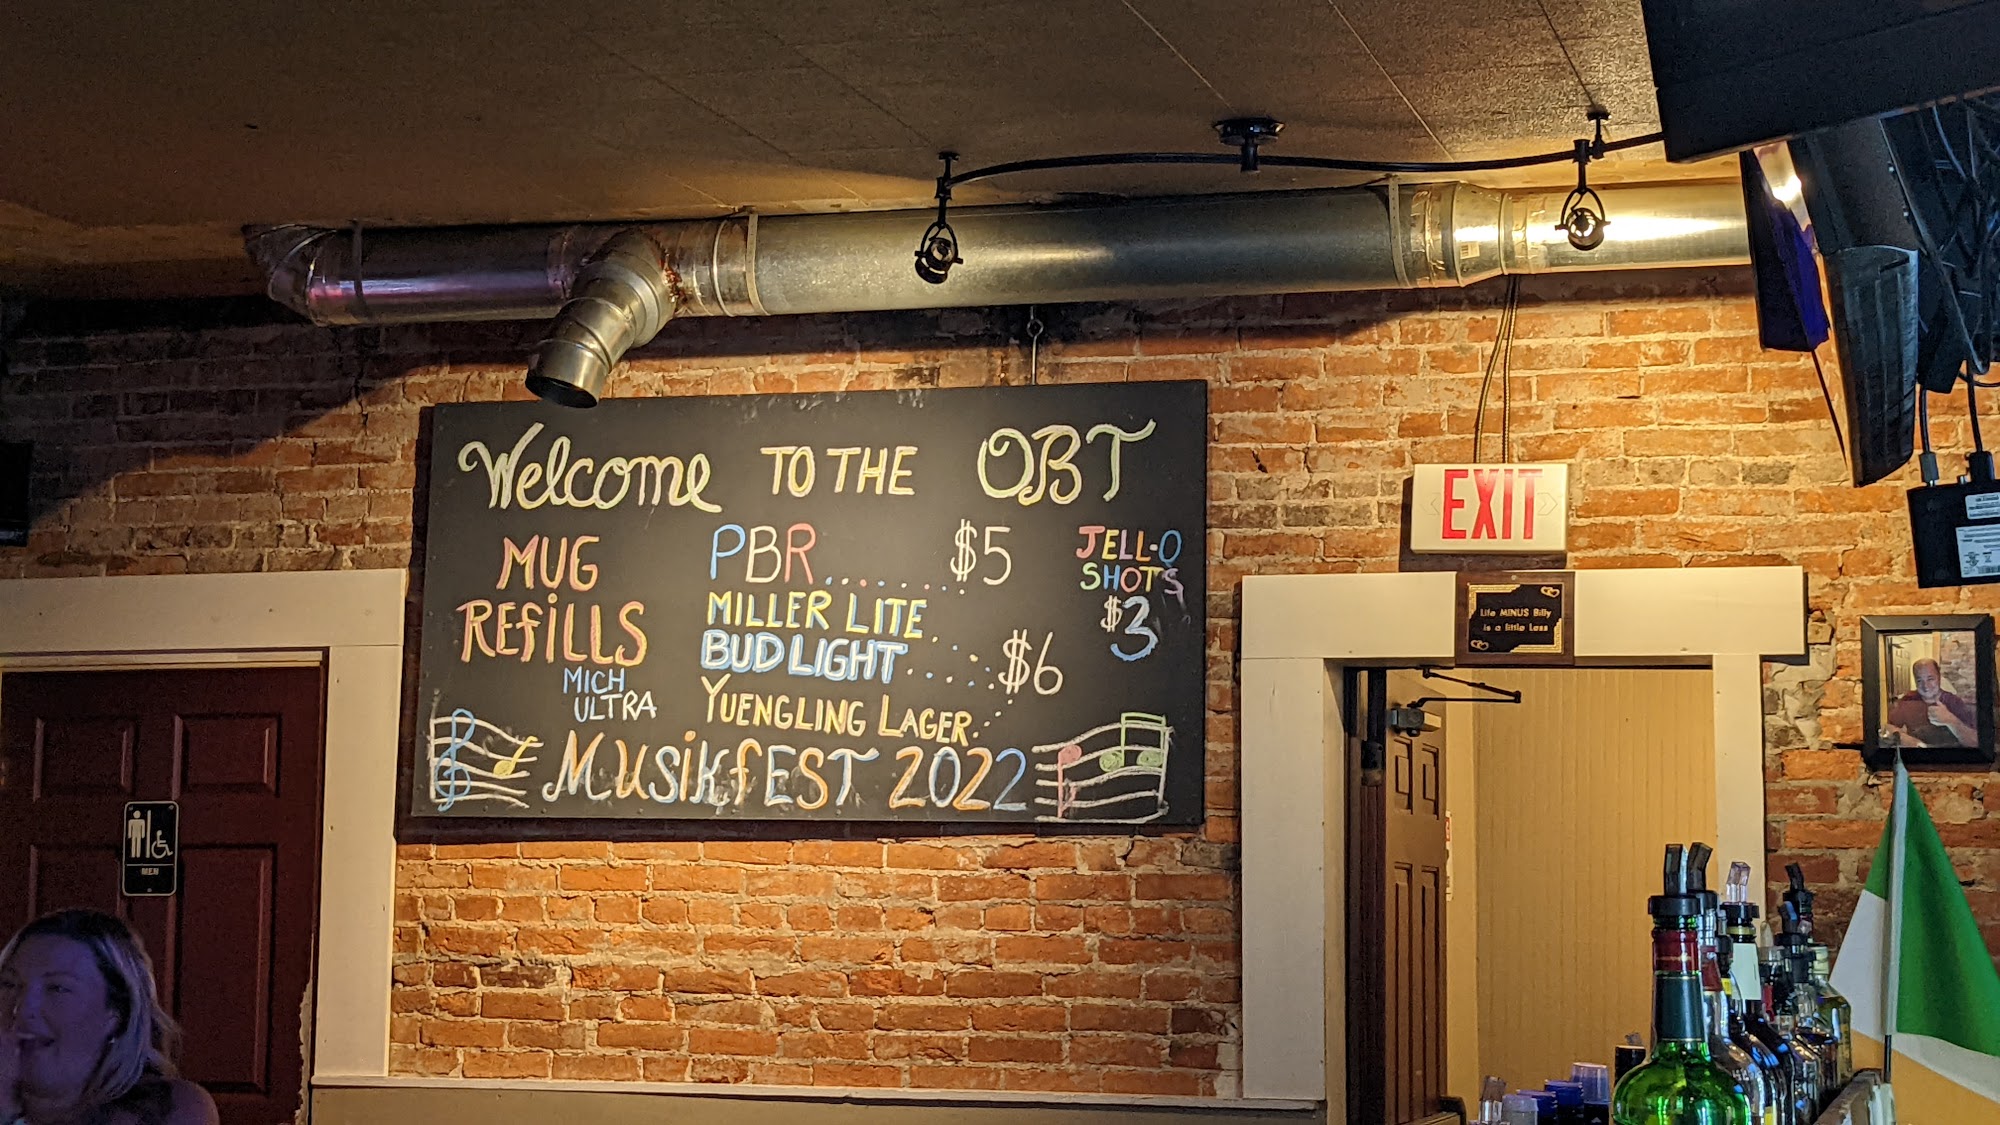 Welcome TO THE OBT
MUG
REFiLLS
MICH
ULTRA
PBR.......... $5
MILLER LITE.
BUD LIGHT..... $6
YUENGLING LAGER...
JELL-O
SHOTS
$3
MUSiKfEST 2022
EXIT
Life MINUS Billy
is a little Less
MEN